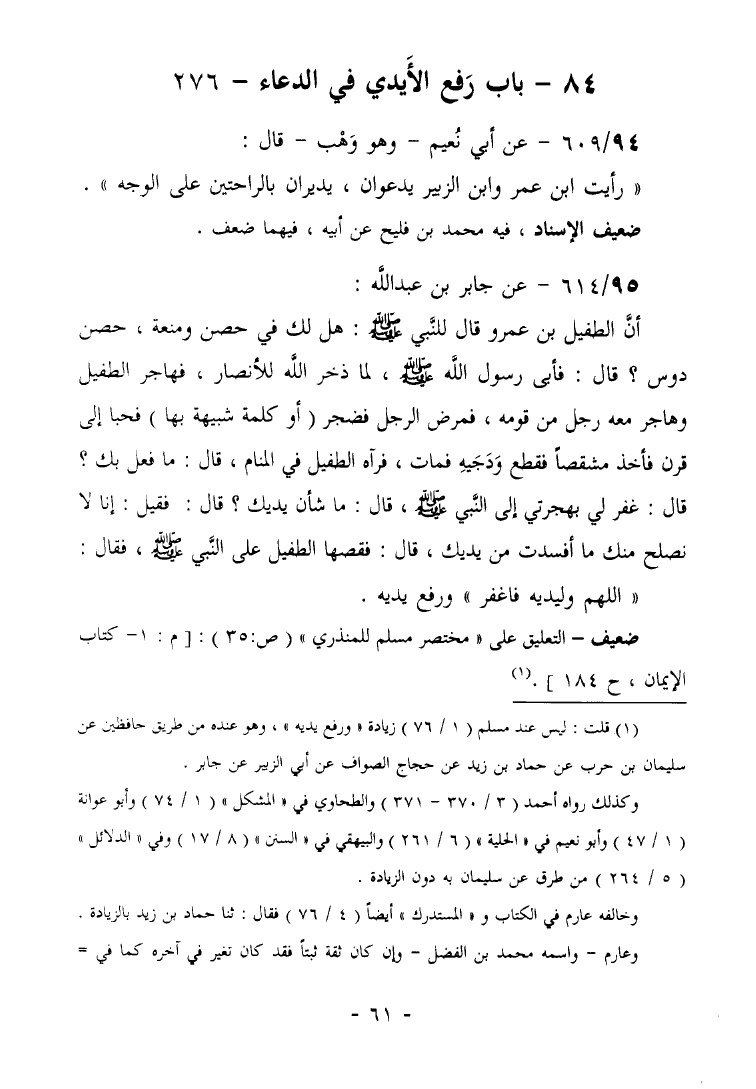 ٨٤ - باب رَفع الأَيدي في الدعاء - ٢٧٦
٦٠٩/٩٤ - عن أبي نُعيم - وهو وَهْب - قال :
« رأيت ابن عمر وابن الزبير يدعوان ، يديران بالراحتين على الوجه » .
ضعيف الإسناد ، فيه محمد بن فليح عن أبيه ، فيهما ضعف .
٦١٤/٩٥ - عن جابر بن عبداللَّه :
أنَّ الطفيل بن عمرو قال للنَّبي ﷺ : هل لك في حصن ومنعة ، حصن
دوس ؟ قال : فأبى رسول اللَّه ﷺ ، لما ذخر اللَّه للأنصار ، فهاجر الطفيل
وهاجر معه رجل من قومه ، فمرض الرجل فضجر ( أو كلمة شبيهة بها ) فحبا إلى
قرن فأخذ مشقصاً فقطع وَدَجَيهِ فمات ، فرآه الطفيل في المنام ، قال : ما فعل بك ؟
قال : غفر لي بهجرتي إلى النَّبي ﷺ ، قال : ما شأن يديك ؟ قال : فقيل : إنا لا
نصلح منك ما أفسدت من يديك ، قال : فقصها الطفيل على النَّبي ﷺ ، فقال :
« اللهم وليديه فاغفر » ورفع يديه .
ضعيف - التعليق على « مختصر مسلم للمنذري » ( ص:٣٥ ) : [ م : ١- كتاب
الإيمان ، ح ١٨٤ ] .(١)
(١) قلت : ليس عند مسلم ( ١ / ٧٦ ) زيادة « ورفع يديه » ، وهو عنده من طريق حافظين عن
سليمان بن حرب عن حماد بن زيد عن حجاج الصواف عن أبي الزبير عن جابر .
وكذلك رواه أحمد ( ٣ / ٣٧٠ - ٣٧١ ) والطحاوي في « المشكل » ( ١ / ٧٤ ) وأبو عوانة
( ١ / ٤٧ ) وأبو نعيم في « الحلية » ( ٦ / ٢٦١ ) والبيهقي في « السنن » ( ٨ / ١٧ ) وفي « الدلائل »
( ٥ / ٢٦٤ ) من طرق عن سليمان به دون الزيادة .
وخالفه عارم في الكتاب و « المستدرك » أيضاً ( ٤ / ٧٦ ) فقال : ثنا حماد بن زيد بالزيادة .
وعارم - واسمه محمد بن الفضل - وإن كان ثقة ثبتاً فقد كان تغير في آخره كما في =
- ٦١ -